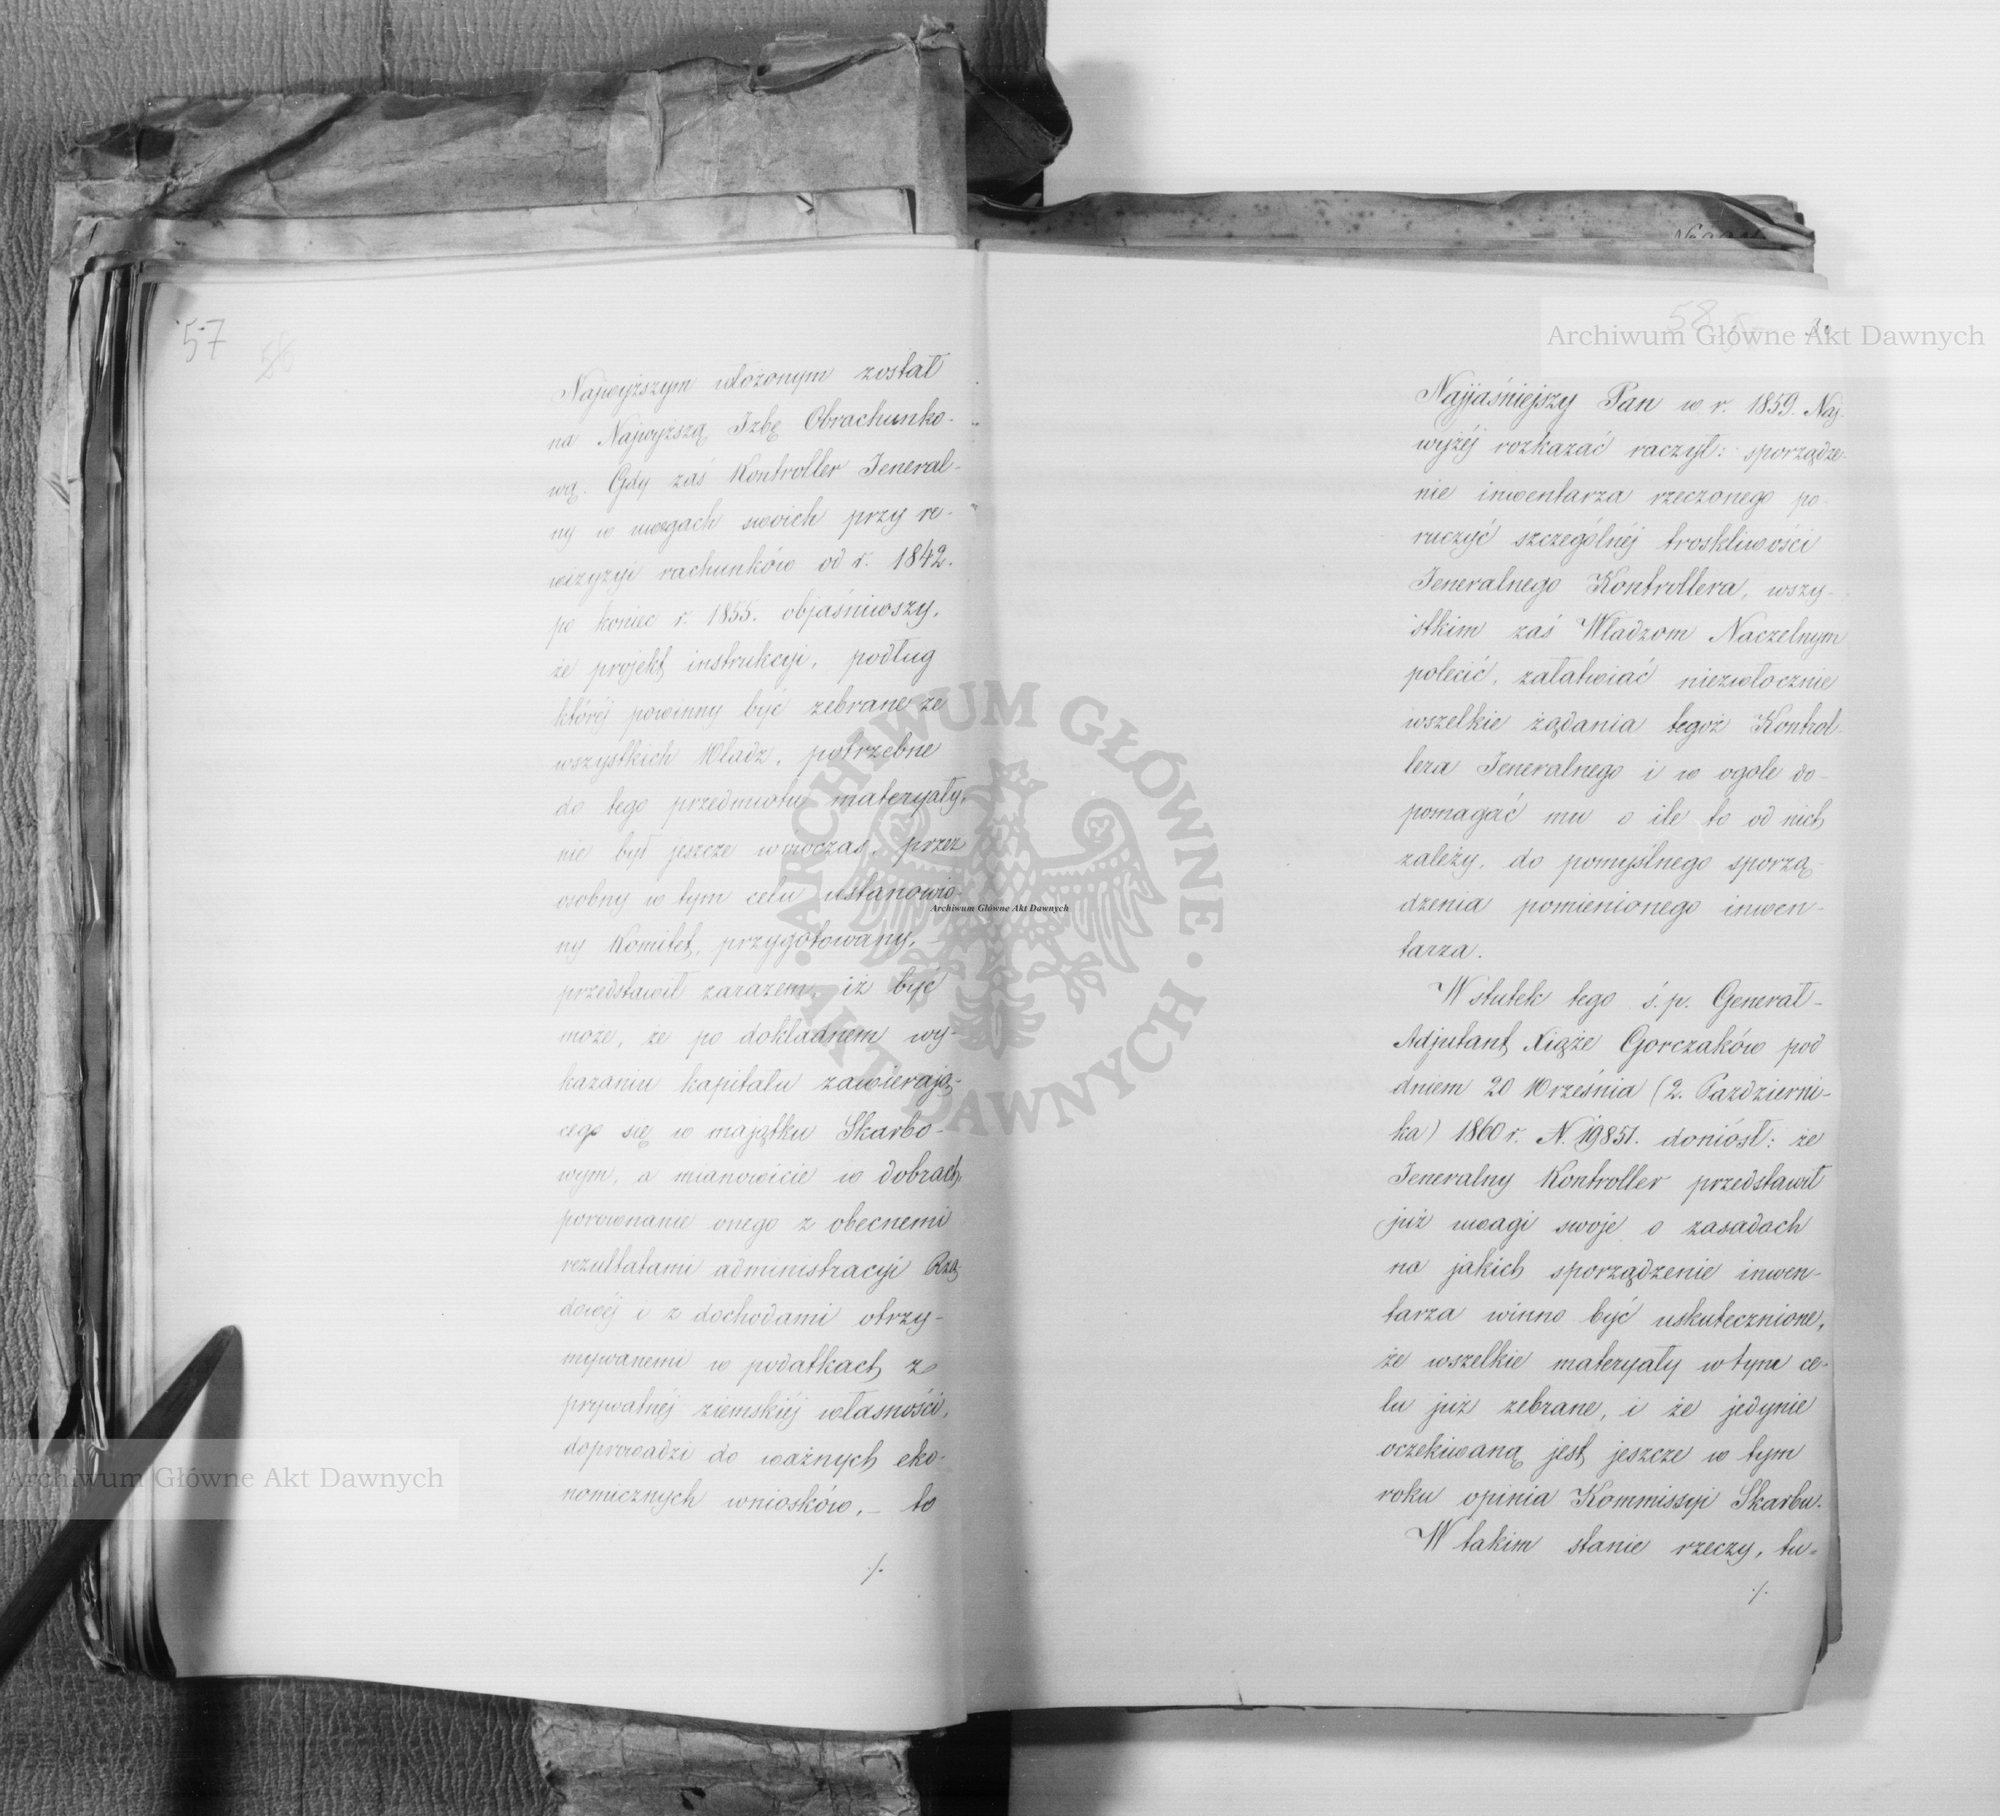 57
56
Najwyższym włożonym został
na Najwyższą Izbę Obrachunko-
wą. Gdy zaś Kontroller Jeneral-
ny w uwagach swoich przy re-
wizyi rachunków od r. 1842.
po koniec r. 1855. objaśniwszy,
że projekt instrukcyi, podług
któréj powinny być zebrane ze
wszystkich Władz, potrzebne
do tego przedmiotu materyały,
nie był jeszcze wówczas, przez
osobny w tym celu ustanowio-
ny Komitet, przygotowany, –
przedstawił zarazem, iż być
może, że po dokładnem wy-
kazaniu kapitału zawierają-
cego się w majątku Skarbo-
wym, a mianowicie w dobrach,
porównanie onego z obecnemi
rezultatami administracyi Rzą-
dowéj i z dochodami otrzy-
mywanemi w podatkach z
prywatnéj ziemskiéj własności,
doprowadzi do ważnych eko-
nomicznych wniosków, – to
./.
58
Najjaśniejszy Pan w r. 1859. Naj-
wyżéj rozkazać raczył: sporządze-
nie inwentarza rzeczonego po-
ruczyć szczególnéj troskliwości
Jeneralnego Kontrollera, wszy-
stkim zaś Władzom Naczelnym
polecić, załatwiać niezwłocznie
wszelkie żądania tegoż Kontrol-
lera Jeneralnego i w ogóle do-
pomagać mu o ile to od nich
zależy, do pomyślnego sporzą-
dzenia pomienionego inwen-
tarza.
W skutek tego ś. p. Generał-
Adjutant Xiąże Gorczaków pod
dniem 20 Września (2. Październi-
ka) 1860 r. N. 19851. doniósł: że
Jeneralny Kontroller przedstawił
już uwagi swoje o zasadach
na jakich sporządzenie inwen-
tarza winno być uskutecznione,
że wszelkie materyały w tym ce-
lu już zebrane, i że jedynie
oczekiwaną jest jeszcze w tym
roku opinia Kommissyi Skarbu.
W takim stanie rzeczy, tu-
./.
Archiwum Główne Akt Dawnych
Archiwum Główne Akt Dawnych
Archiwum Główne Akt Dawnych
ARCHIWUM GŁÓWNE
AKT DAWNYCH